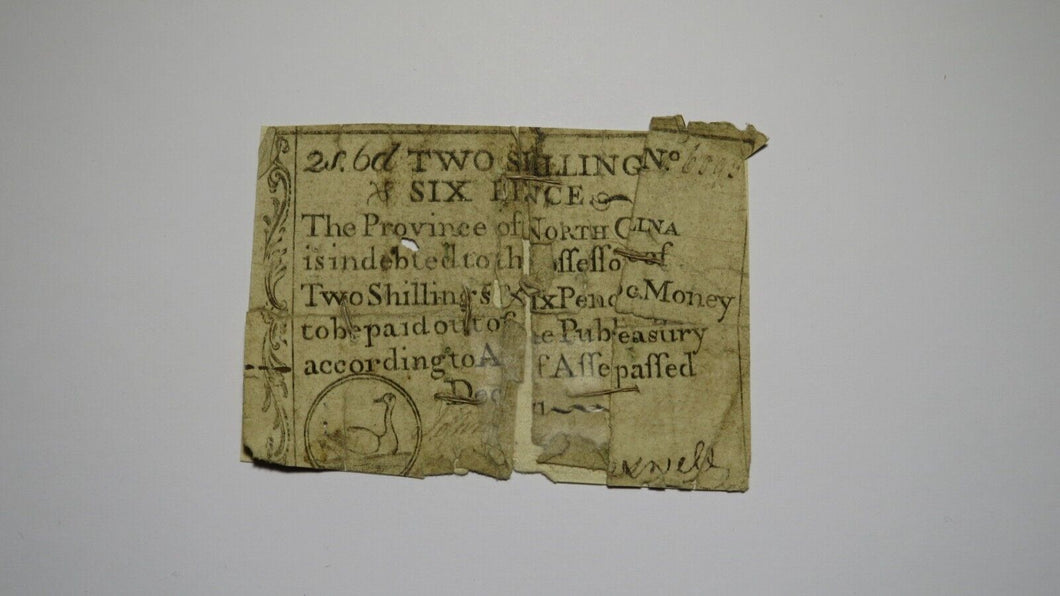 2s.6d TWO SHILLING No
SIX ENCE
The Province of NORTH C INA
is indebted to th ossesso of
Two Shillings S ix Penc oc. Money
to be paid out of e Pub easury
according to A f Asse passed
Dec
xwell